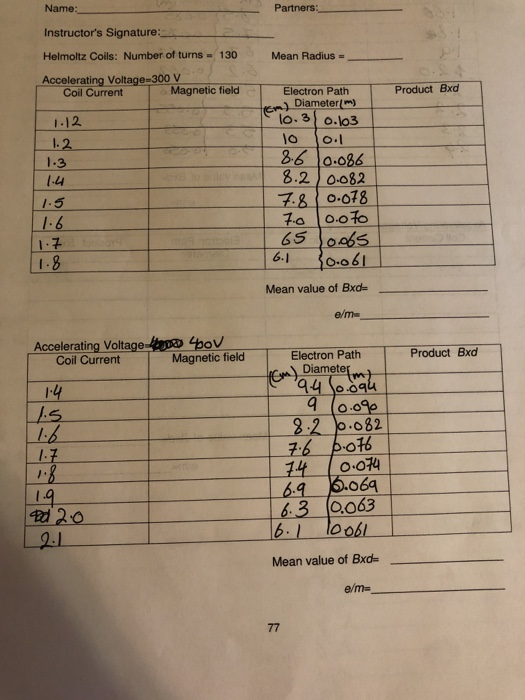 Name: Partners:
Instructor's Signature:
Helmoltz Coils: Number of turns = 130 Mean Radius =
Accelerating Voltage=300 V
Coil Current Magnetic field Electron Path Product Bxd
(cm) Diameter(m)
1.12 10.3 0.103
1.2 10 0.1
1.3 8.6 0.086
1.4 8.2 0.082
1.5 7.8 0.078
1.6 7.0 0.070
1.7 65 0.065
1.8 6.1 0.061
Mean value of Bxd=
e/m=
Accelerating Voltage= 400V
Coil Current Magnetic field Electron Path Product Bxd
(cm) Diameter (m)
1.4 9.4 0.094
1.5 9 0.090
1.6 8.2 0.082
1.7 7.6 0.076
1.8 7.4 0.074
1.9 6.9 0.069
2.0 6.3 0.063
2.1 6.1 0.061
Mean value of Bxd=
e/m=
77